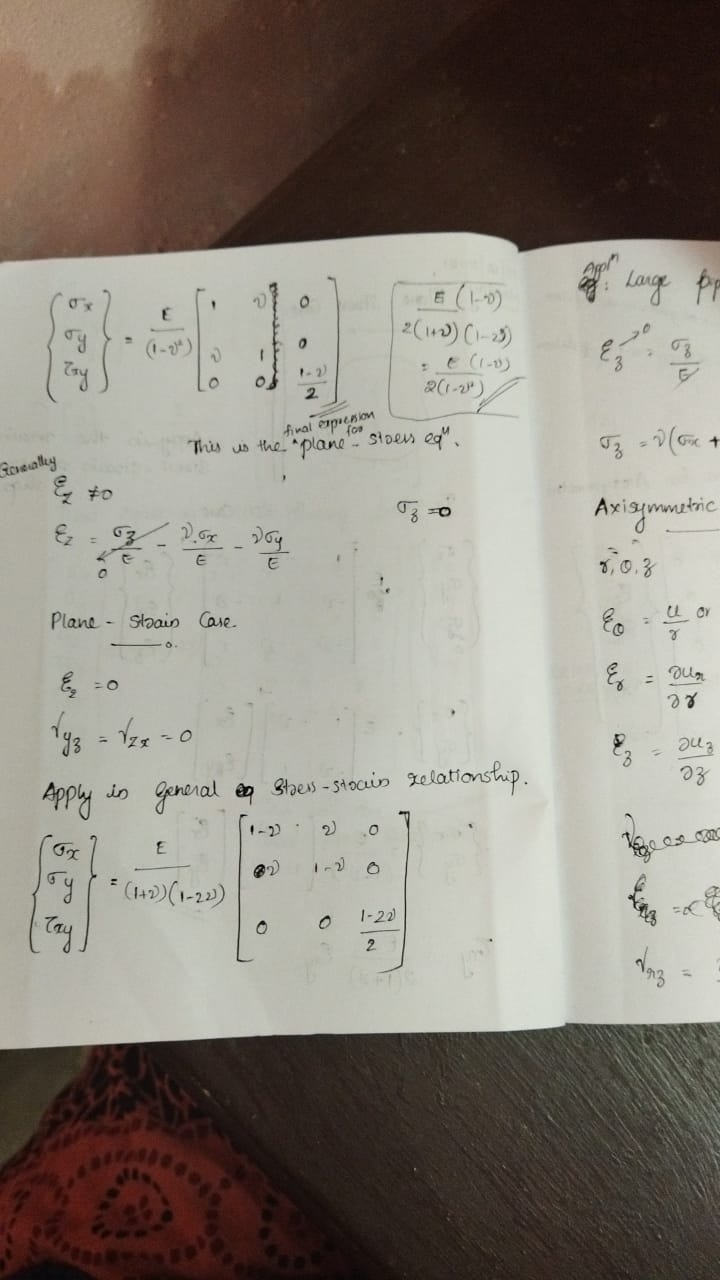 {σx σy τxy} = E/(1-ν²) [1 ν 0
ν 1 0
0 0 1-ν/2]
E(1-ν)
2(1+ν)(1-ν)
= E(1-ν)
2(1-ν²)
final expression for
This is the "plane - stress eqⁿ.
Generally
εz ≠0
σz =0
εz = σz/E - ν.σx/E - νσy/E
0
Plane - Strain Case.
εz =0
γyz = γzx = 0
Apply in general stress-strain relationship.
{σx σy τxy} = E/(1+ν)(1-2ν) [1-ν ν 0
ν 1-ν 0
0 0 1-2ν/2]
Applⁿ : Large
εz →0 = σz/E
σz = ν(σx +
Axisymmetric
r, θ, z
εθ = u/r or
εr = ∂ur/∂r
εz = ∂uz/∂z
γrz =